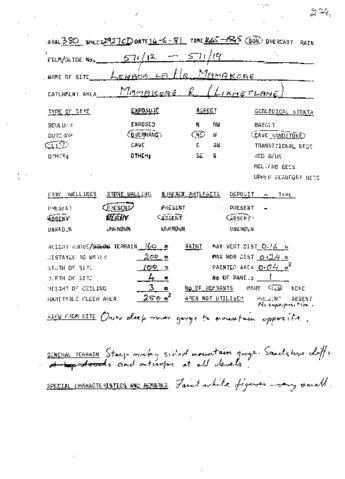 224.
ARAL 380 SHEET 2927CD DATE 14-6-81 TIME SUN OVERCAST RAIN
FILM/SLIDE No. 571/12 — 571/19
NAME OF SITE LEHAHA LA HA MAMAKOAE
CATCHMENT AREA MAMAKOAE R (LIKHETLANE)
TYPE OF SITE EXPOSURE ASPECT GEOLOGICAL STRATA
BOULDER EXPOSED N NW BASALT
OUTCROP OVERHANG NE W CAVE SANDSTONE
CLIFF CAVE E SW TRANSITIONAL BEDS
OTHER: OTHER: SE S RED BEDS
MOLTENO BEDS
UPPER BEAUFORT BEDS
CAVE DWELLINGS STONE WALLING SURFACE ARTEFACTS DEPOSIT - TYPE
PRESENT PRESENT PRESENT PRESENT -
ABSENT ABSENT ABSENT ABSENT
UNKNOWN UNKNOWN UNKNOWN UNKNOWN
HEIGHT ABOVE/BELOW TERRAIN 160 m PAINT MAX VERT DIST 0.16 m
DISTANCE TO WATER 200 m MAX HOR DIST 0.24 m
WIDTH OF SITE 100 m PAINTED AREA 0.04 m²
DEPTH OF SITE 4 m No OF PANELS 1
HEIGHT OF CEILING 3 m No OF REMNANTS MANY FEW NONE
HABITABLE FLOOR AREA 250 m² AREA NOT UTILISED PRESENT ABSENT
No superposition.
VIEW FROM SITE Over deep river gorge to mountain opposite.
GENERAL TERRAIN Steep rocky sided mountain gorge. Sandstone cliffs
and outcrops at all levels.
SPECIAL CHARACTERISTICS AND REMARKS Faint white figures - very small.